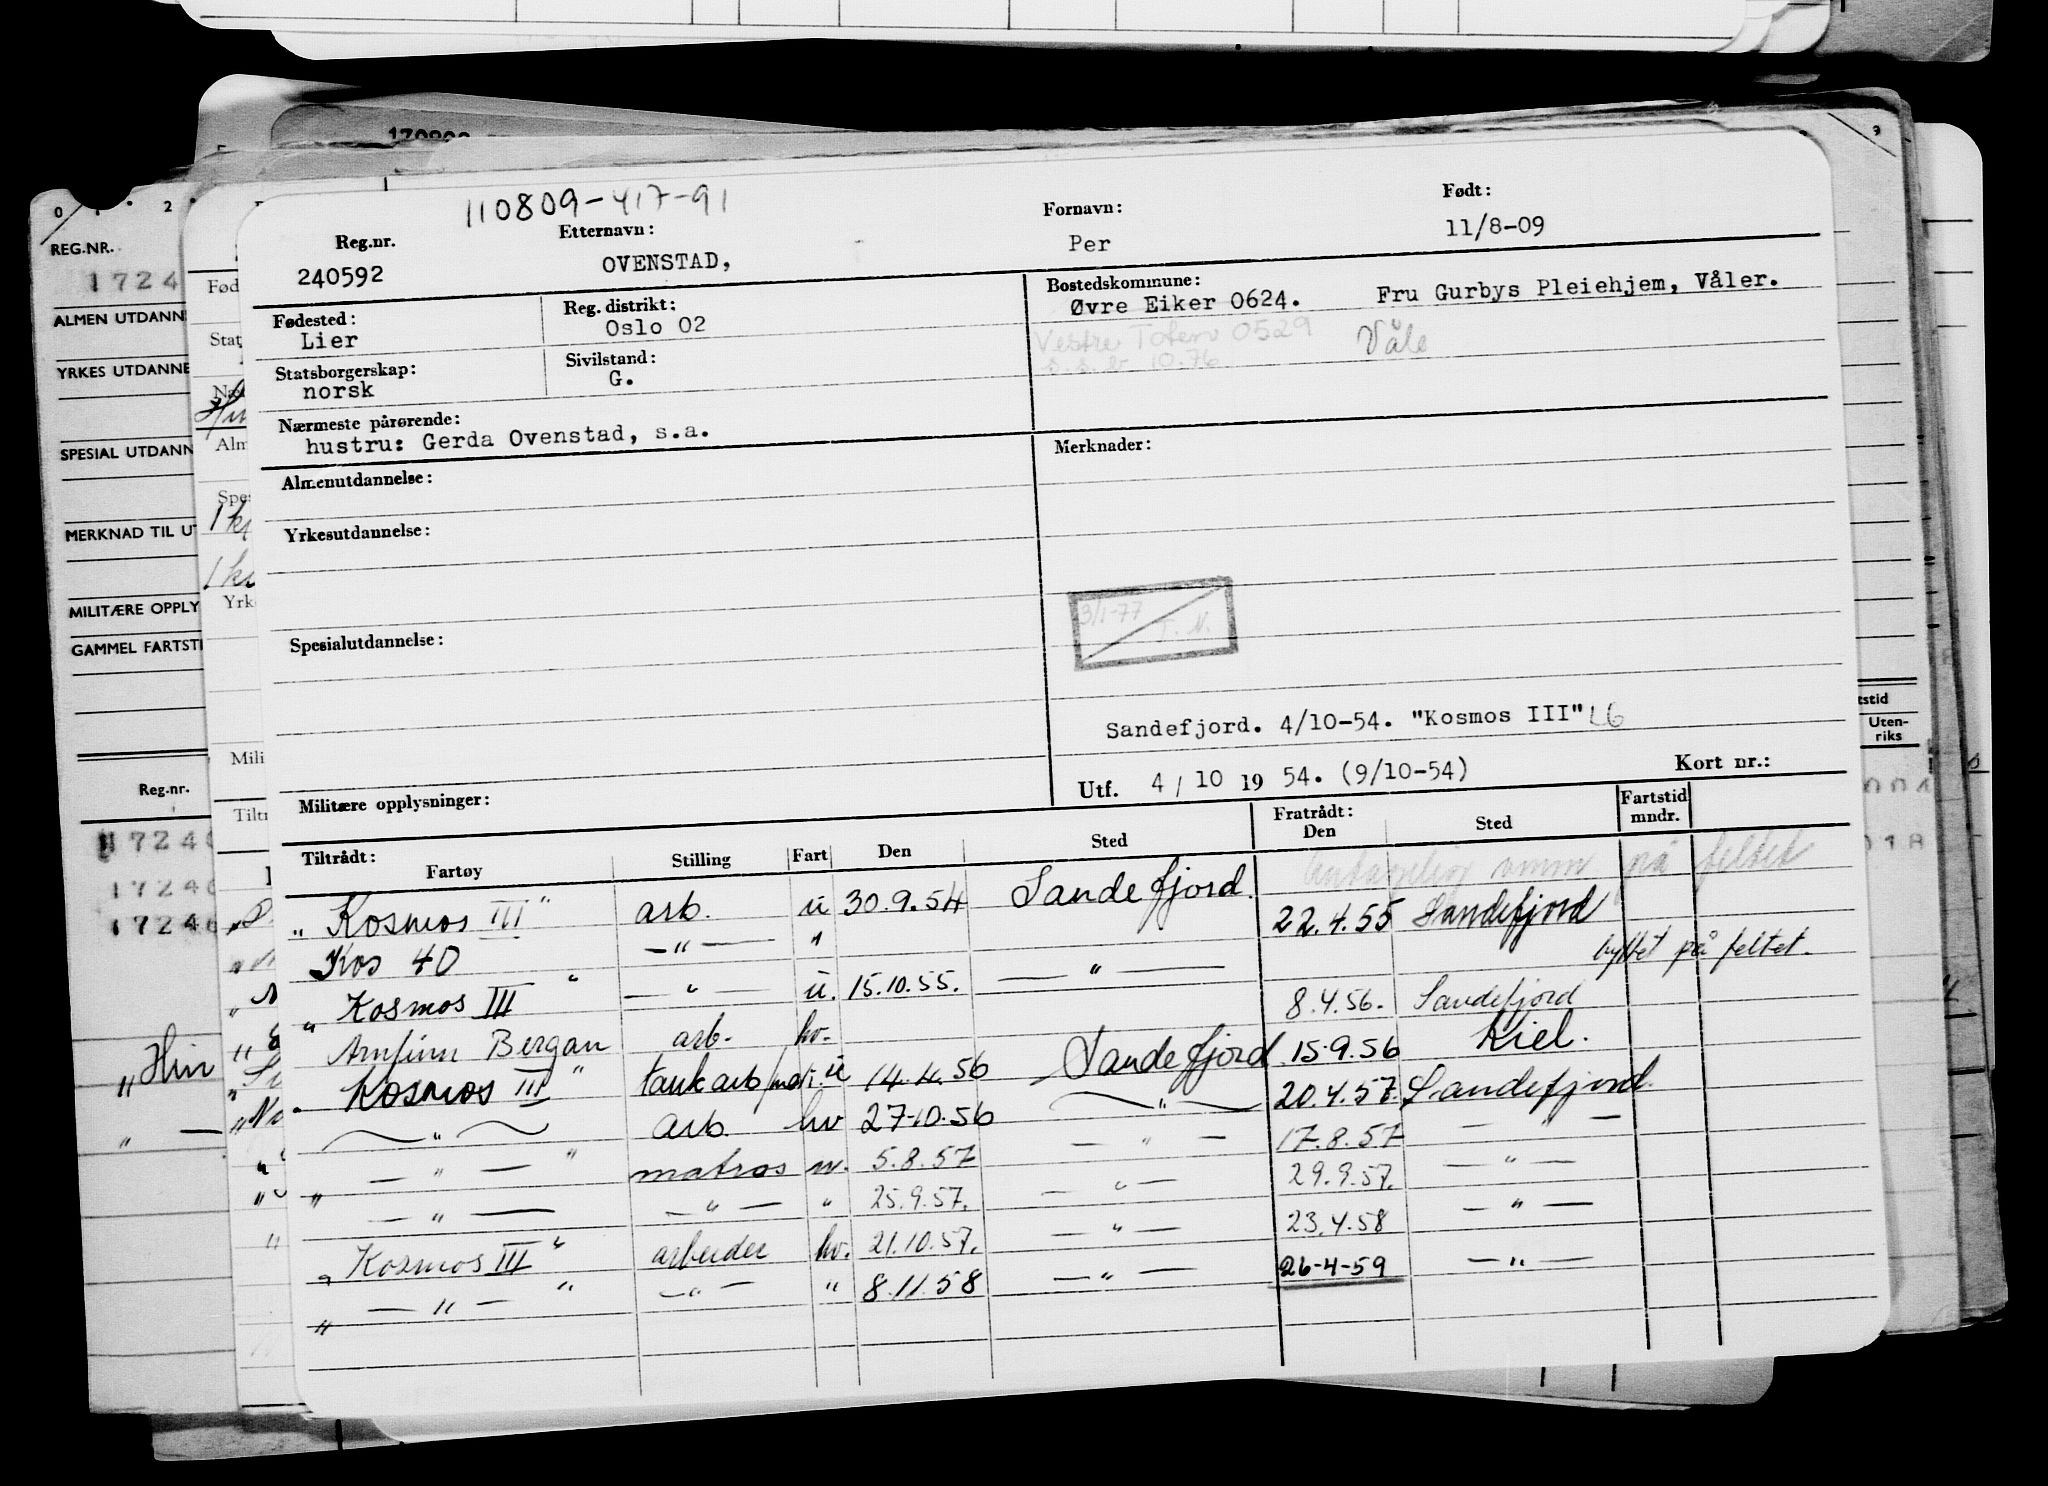 170809
110809-417-91
Reg.nr. Etternavn: Fornavn: Født:
240592 OVENSTAD, Per 11/8-09
Fødested: Reg. distrikt: Bostedskommune:
Lier Oslo 02 Øvre Eiker 0624. Fru Gurbys Pleiehjem, Våler.
Vestre Toten 0529 Våle
10.76.
Statsborgerskap: Sivilstand:
norsk G.
Nærmeste pårørende:
hustru: Gerda Ovenstad, s.a.
Almenutdannelse: Merknader:
Yrkesutdannelse:
3/1-77 T. N.
Spesialutdannelse:
Sandefjord. 4/10-54. "Kosmos III" LG
Utf. 4/10 1954. (9/10-54) Kort nr.:
Militære opplysninger:
Tiltrådt: Fratrådt: Fartstid
Fartøy Stilling Fart Den Sted Den Sted mndr.
på feltet
„Kosmos III" arb. u 30.9.54 Sandefjord. 22.4.55 Sandefjord
Kos 40 —"— " byttet på feltet.
„Kosmos III" —"— u. 15.10.55. —"— 8.4.56. Sandefjord
Arnfinn Bergan arb. hv. 15.9.56 Kiel.
"Kosmos III" tankarb/ u 14.4.56 Sandefjord 20.4.57. Sandefjord
—"— arb. hv 27-10.56 —"— 17.8.57 —"—
„—"—" matros 5.8.57 —"— 29.9.57. —"—
—"— —"— " 25.9.57. —"— 23.4.58 —"—
„Kosmos III" arbeider hv. 21.10.57. —"— 26-4-59 —"—
„—"—" —"— " 8.11.58 —"—
REG.NR.
1724
ALMEN UTDANN
YRKES UTDANNE
SPESIAL UTDANN
MERKNAD TIL U
MILITÆRE OPPLY
GAMMEL FARTST
Reg.nr.
1724
1724
1724
Fød
Stat
Alm
Spes
Yrk
Mili
Tiltr
„Hin
tstid
Uten-
riks
001
018